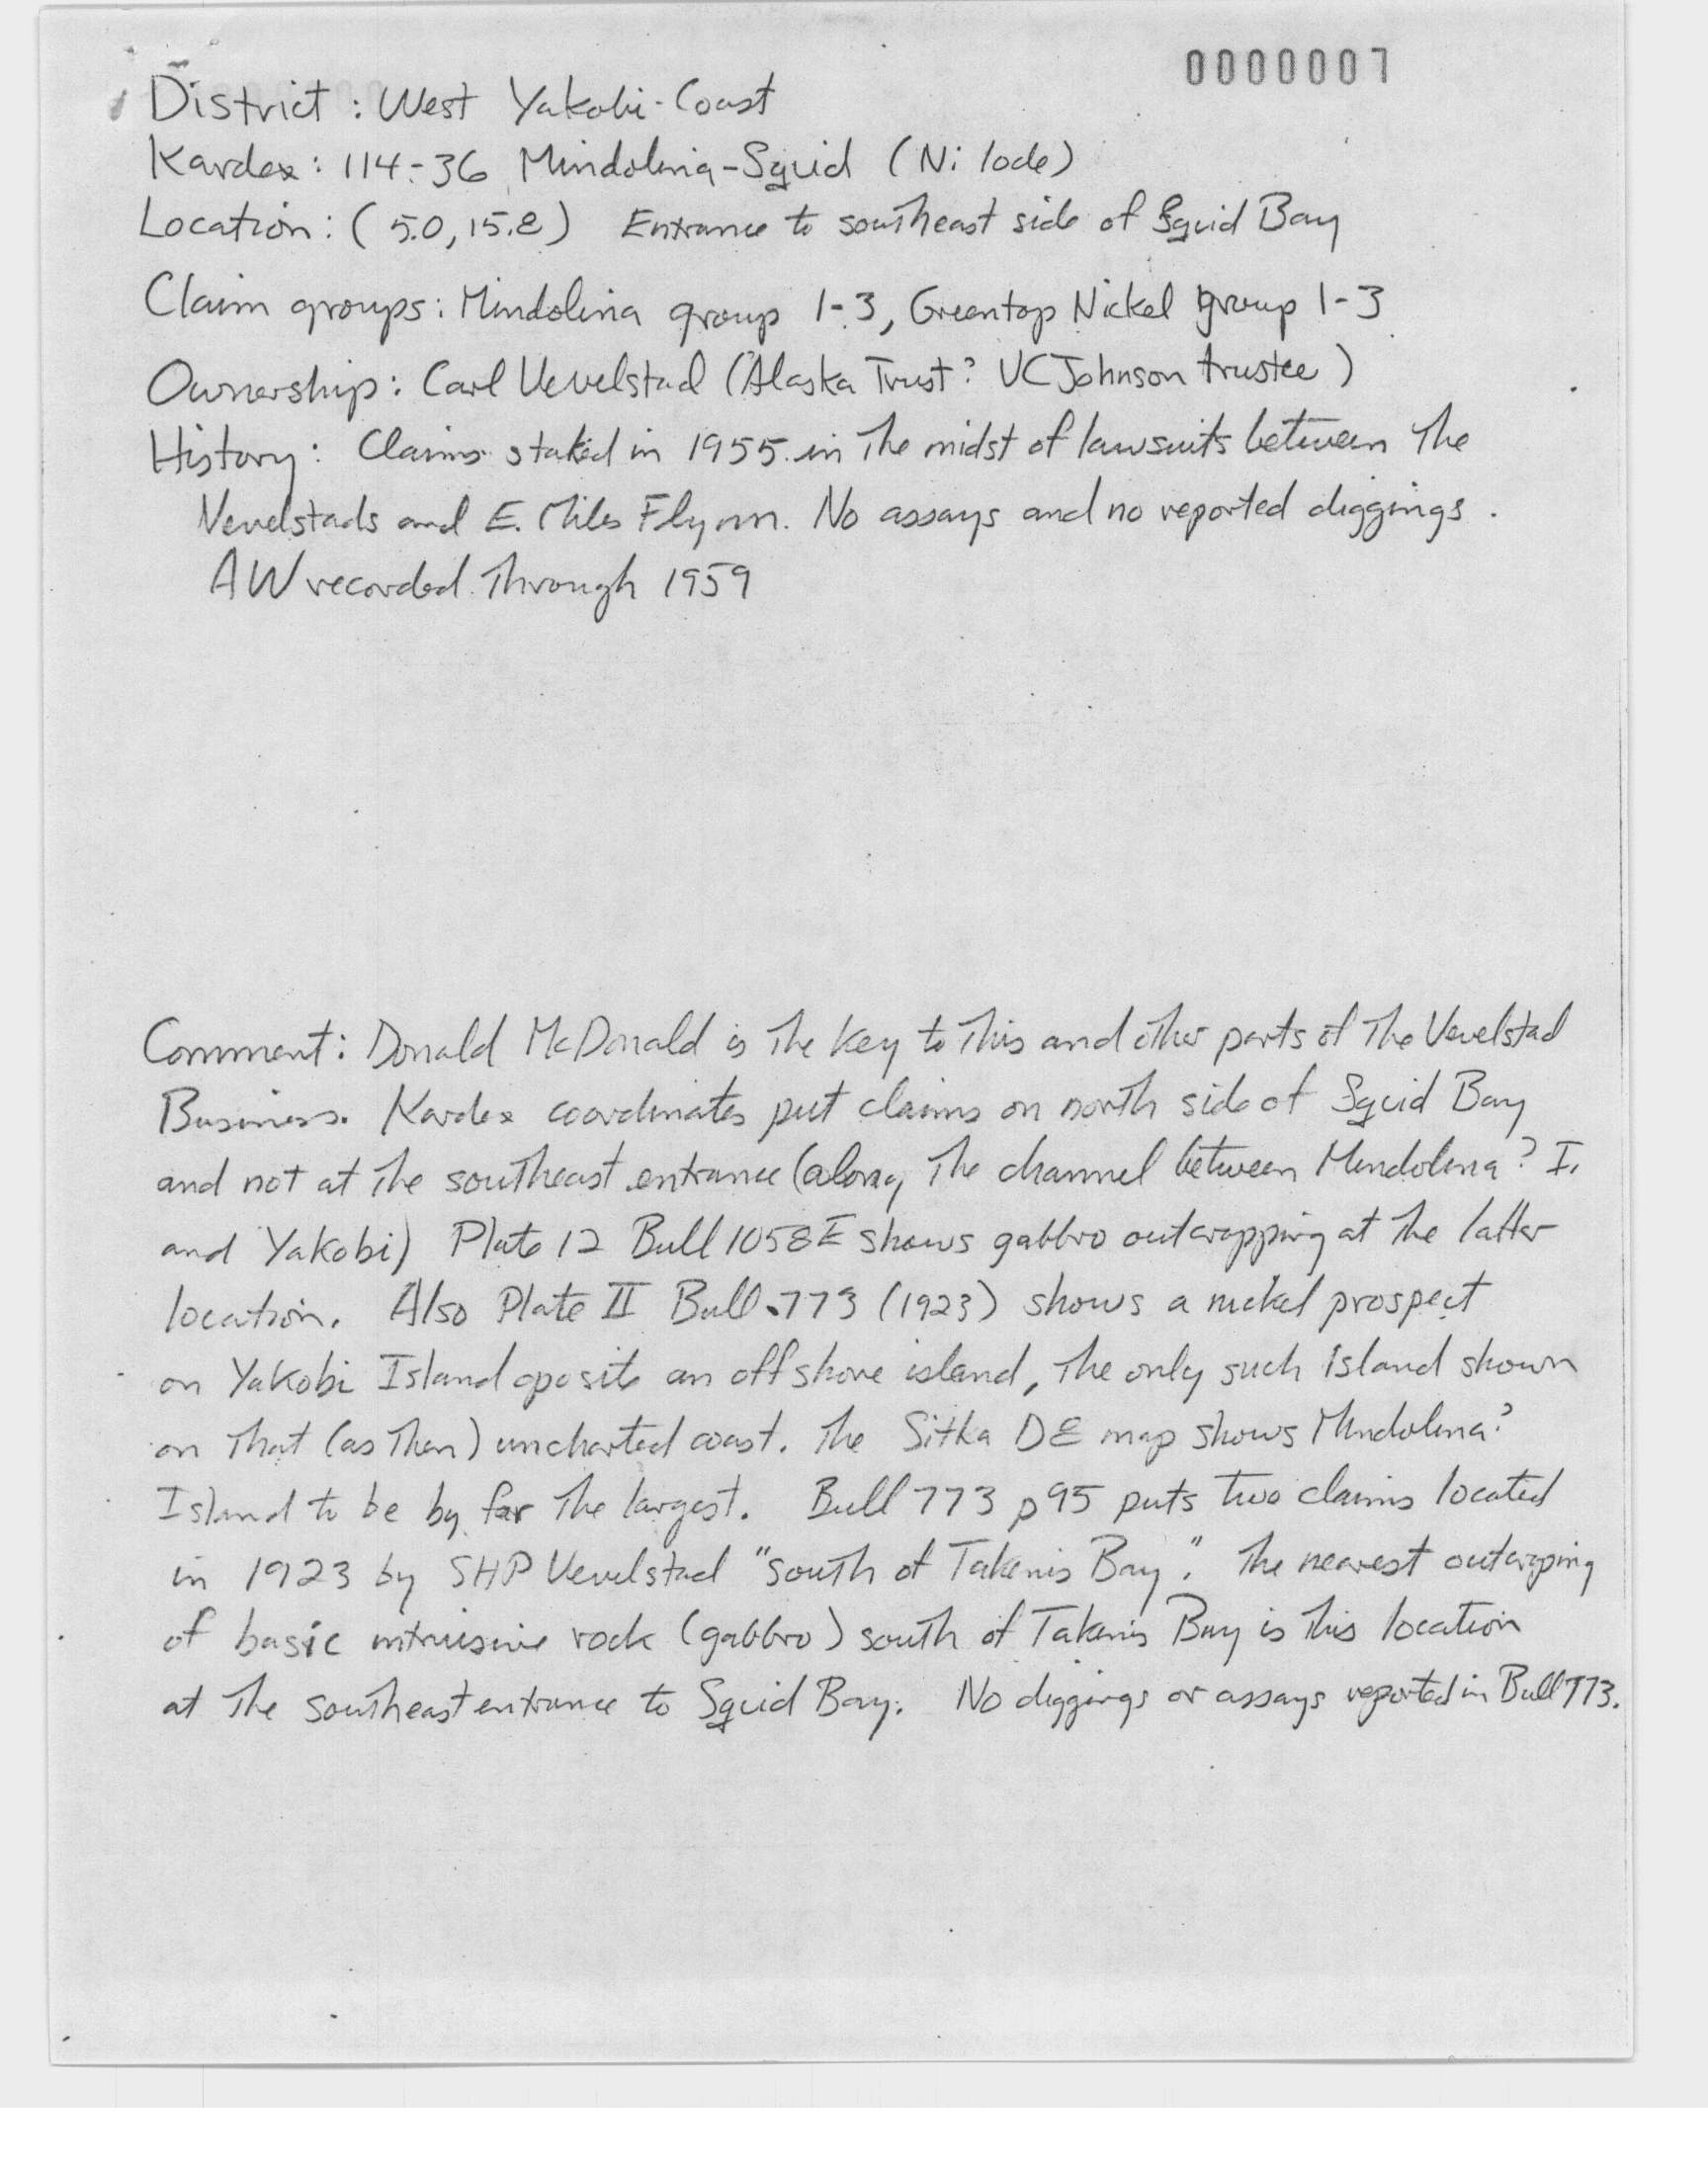 0000007
District : West Yakobi-Coast
Kardex: 114-36 Mindolina-Squid (Ni lode)
Location: (5.0, 15.8) Entrance to southeast side of Squid Bay
Claim groups: Mindolina group 1-3, Greentop Nickel group 1-3
Ownership: Carl Vevelstad (Alaska Trust? VC Johnson trustee)
History: Claims staked in 1955 in the midst of lawsuits between the
Vevelstads and E. Miles Flynn. No assays and no reported diggings.
AW recorded through 1959
Comment: Donald McDonald is the key to this and other parts of the Vevelstad
Business. Kardex coordinates put claims on north side of Squid Bay
and not at the southeast entrance (along the channel between Mindolina? I.
and Yakobi) Plate 12 Bull 1058E shows gabbro outcropping at the latter
location. Also Plate II Bull. 773 (1923) shows a nickel prospect
on Yakobi Island oposite an offshore island, the only such island shown
on that (as then) uncharted coast. The Sitka DE map shows Mindolina?
Island to be by far the largest. Bull 773 p95 puts two claims located
in 1923 by SHP Vevelstad "south of Takanis Bay". The nearest outcroping
of basic intrusive rock (gabbro) south of Takanis Bay is this location
at the southeast entrance to Squid Bay. No diggings or assays reported in Bull 773.